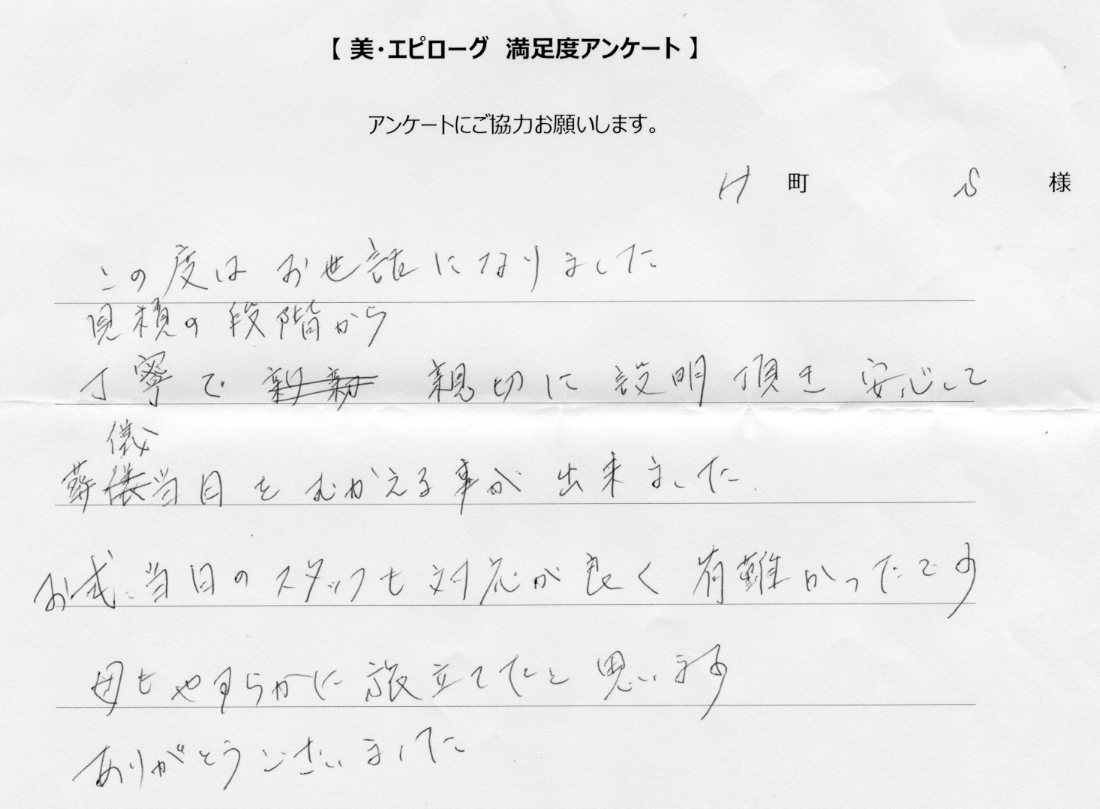 【 美・エピローグ 満足度アンケート 】
アンケートにご協力お願いします。
H 町 S 様
この度は お世話になりました
見積の段階から
丁寧で 親切に 説明 頂き 安心して
儀
葬儀当日を むかえる事が 出来ました
お式、当日のスタッフも 対応が良く 有難かったです
母もやすらかに 旅立てたと思います
ありがとうございました